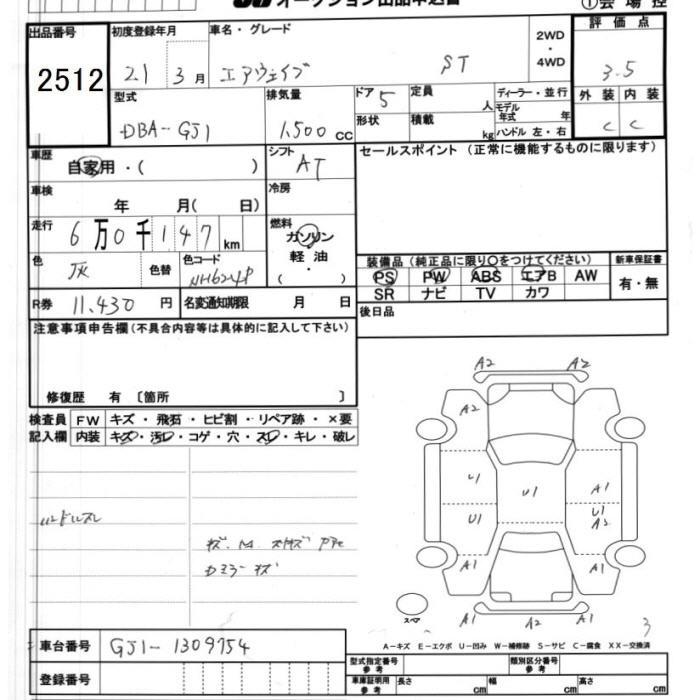 オークション出品申込書
①会場控
出品番号 2512
初度登録年月 21 3月
車名・グレード エアウェイブ ST
2WD・4WD
評価点 3.5
型式 DBA-GJ1
排気量 1,500 cc
ドア 5
形状
定員 人
積載 kg
ディーラー・並行
モデル年式 年
ハンドル 左・右
外装 内装
C C
車歴 自家用・( )
シフト AT
セールスポイント (正常に機能するものに限ります)
車検 年 月( 日)
冷房
走行 6万0千147km
燃料 ガソリン 軽油 ( ・ )
色 灰 色替
色コード NH624P
装備品 (純正品に限り○をつけてください)
新車保証書
PS PW ABS エアB AW
SR ナビ TV カワ
有・無
R券 11,430円
名変通知期限 月 日
後日品
注意事項申告欄(不具合内容等は具体的に記入して下さい)
修復歴 有 〔箇所 〕
検査員記入欄
FW キズ・飛石・ヒビ割・リペア跡・×要
内装 キズ・汚レ・コゲ・穴・スレ・キレ・破レ
ハンドルスレ
A2 A2
A2
U1 U1 A1
U1 U1
A2
A1 A1
A2 A2
スペア
3
車台番号 GJ1-1309754
A-キズ E-エクボ U-凹み W-補修跡 S-サビ C-腐食 XX-交換済
登録番号
型式指定番号 参考
類別区分番号 参考
車庫証明用 参考 長さ cm 幅 cm 高さ cm